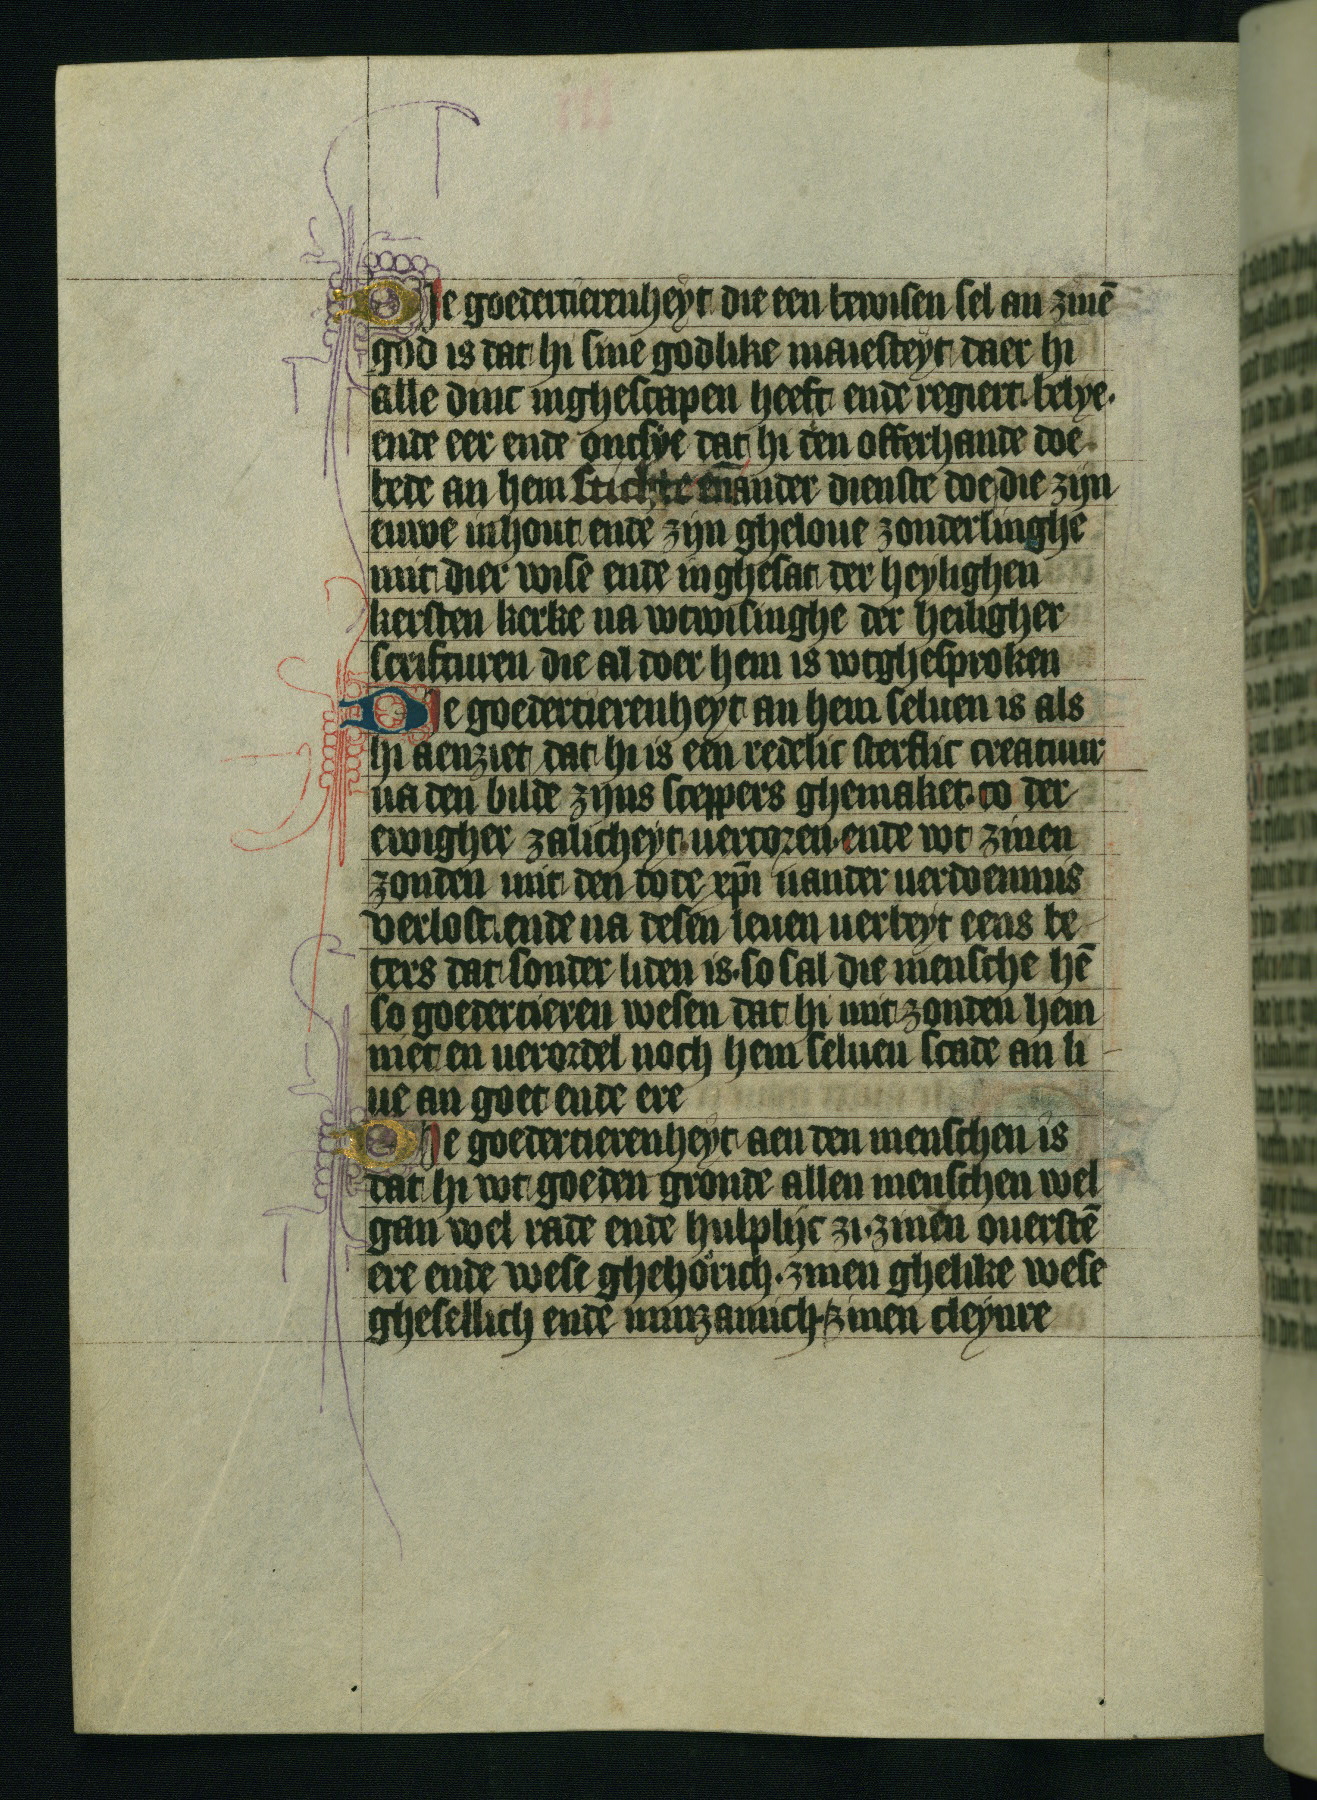 Die goedertierenheyt die een bewisen sel an zinē
god is dat hi sine godlike maiesteyt daer hi
alle dinc inghescapen heeft ende regiert· belye·
ende eer ende ontsye dat hi den offerhande doe·
bede an hem stichte eñ ander dienste doe die zijn
euwe inhout ende zijn gheloue zonderlinghe
mit dier wise ende inghesat der heylighen
kersten kerke na wtwisinghe der heiligher
scrifturen die al doer hem is wtghesproken
Die goedertierenheyt an hem seluen is als
hi aenziet dat hi is een redelic sterflic creatuur
na den bilde zijns sceppers ghemaket· to der
ewigher zalicheyt· vercoren· ende wt zinen
zonden mit den dode xp̄i vander verdoemnis
verlost· ende na desen leuen verbeyt eens be
ters dat sonder liden is· so sal die mensche hē
so goedertieren wesen dat hi mit zonden hem
niet en verordel noch hem seluen scade an li
ue an goet ende ere
Die goedertierenheyt aen den menschen is
dat hi wt goeden gronde allen menschen wel
gan wel rade ende hulplijc zi· zinen ouerstē
ere ende wese ghehorich· zinen ghelike wese
ghesellich ende minzamich· zinen cleynre